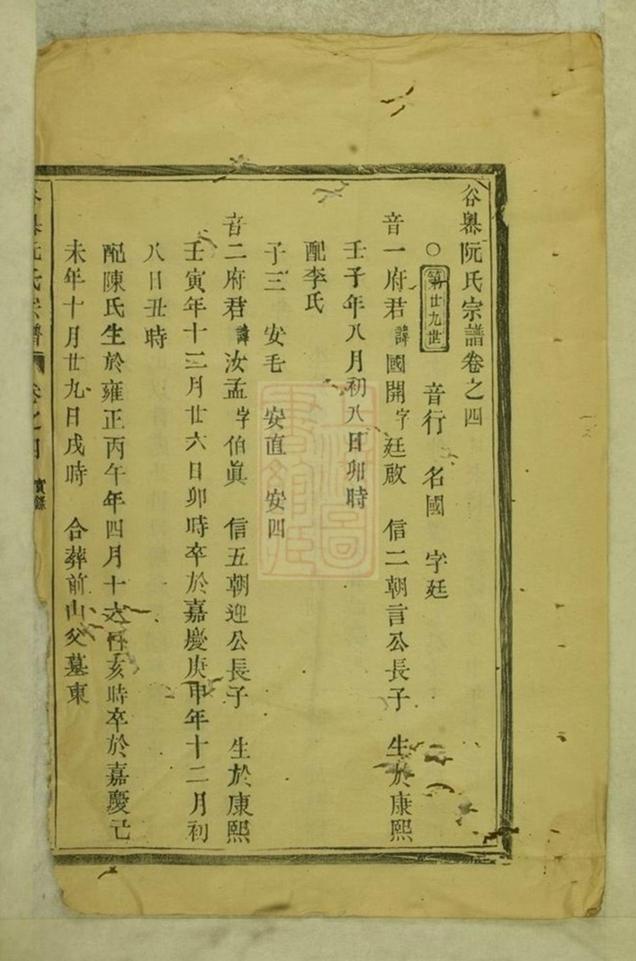 谷與阮氏宗譜卷之四
○第廿九世 音行 名國 字廷
音一府君諱國開字廷啟 信二朝言公長子 生於康熙
壬子年八月初八日卯時
配李氏
子三 安毛 安直 安四
音二府君諱汝孟字伯眞 信五朝迎公長子 生於康熙
壬寅年十三月廿六日卯時卒於嘉慶庚甲年十二月初
八日丑時
配陳氏生於雍正丙午年四月十六日亥時卒於嘉慶亡
未年十月廿九日戌時 合葬前山父墓東
阮氏宗譜 卷之四 實錄